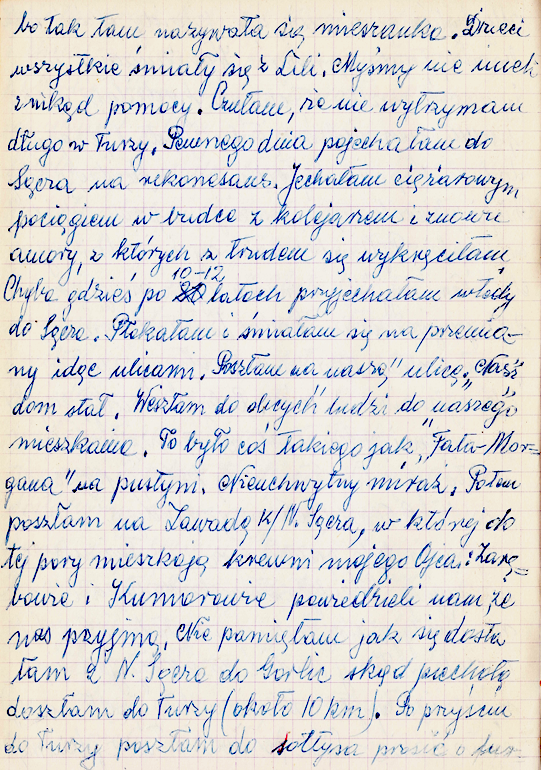 bo tak tam nazywała się mieszanka. Dzieci
wszystkie śmiały się z Lili. Myśmy nie mieli
znikąd pomocy. Czułam, że nie wytrzymam
długo w Turzy. Pewnego dnia pojechałam do
Sącza na rekonesans. Jechałam ciężarowym
pociągiem w budce z kolejarzem i znowu
amory, z których z trudem się wykręciłam
10-12
Chyba gdzieś po 20 latach przyjechałam wtedy
do Sącza. Płakałam i śmiałam się na przemia-
ny idąc ulicami. Poszłam na "naszą" ulicę. "Nasz"
dom stał. Weszłam do obcych ludzi do "naszego"
mieszkania. To było coś takiego jak "Fata-Mor=
gana" na pustyni. Nieuchwytny miraż. Potem
poszłam na Zawadę K/N. Sącza, w której do
tej pory mieszkają krewni mojego Ojca: Zarę=
bowie i Kumorowie powiedzieli nam, że
nas przyjmą. Nie pamiętam jak się dosta
łam z N. Sącza do Gorlic skąd piechotą
doszłam do Turzy (około 10 km). Po przyjściu
do Turzy poszłam do sołtysa prosić o fur-